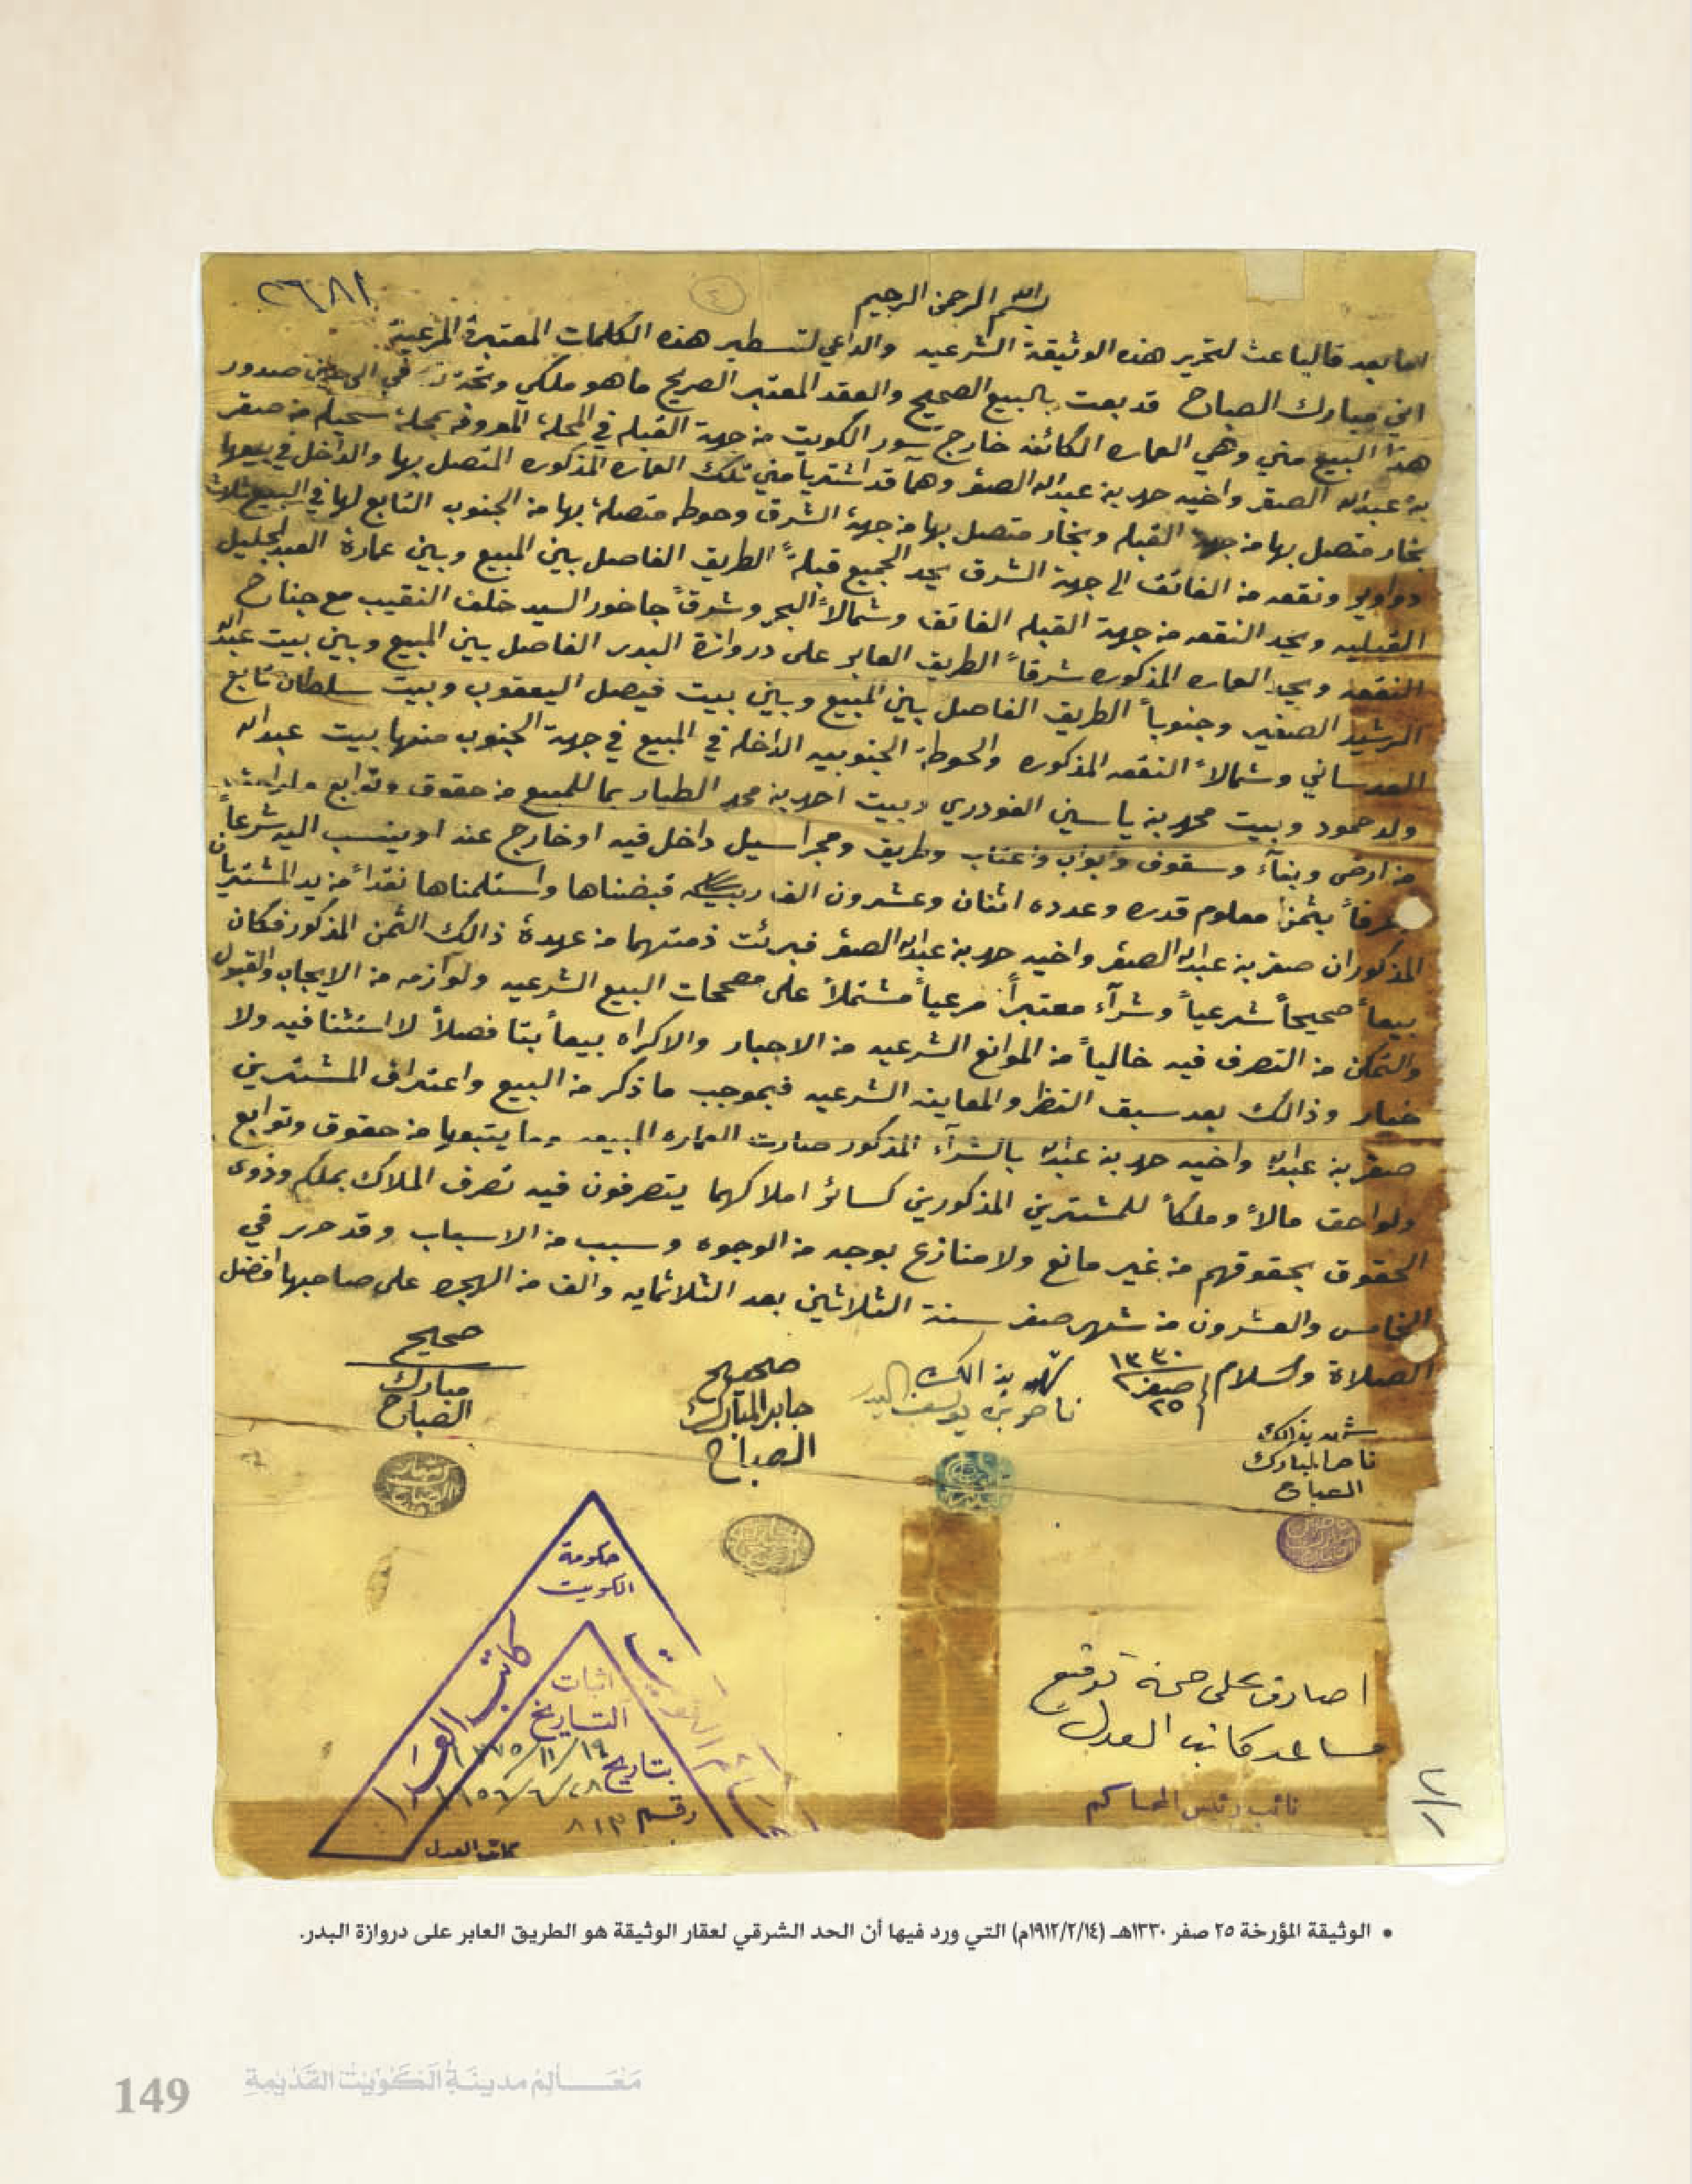 ٢٦٨١
٤
بسم الله الرحمن الرحيم
اما بعد فالباعث لتحرير هذه الوثيقة الشرعيه والداعي لتسطير هذه الكلمات المعتبرة المرعية
انني مبارك الصباح قد بعت بالبيع الصحيح والعقد المعتبر الصريح ما هو ملكي وتحت في الى حين صدور
هذا البيع مني وهي العماره الكائنه خارج سور الكويت من جهة القبله في المحلة المعروفه بمحلة سحيله من صقر
بن عبدالله الصقر واخيه حمد بن عبدالله الصقر وهما قد اشتريا مني تلك العماره المذكوره المتصل بها والداخل في بيعها
بخار متصل بها من جهة القبله وبخار متصل بها من جهة الشرق وحوطه متصلة بها من الجنوب التابع لها في البيع ثلاث
دواوير ونقعه من الفائف الى جهة الشرق يحد الجميع قبلةً الطريق الفاصل بين المبيع وبين عمارة العبدالجليل
القبيليه ويحد النقعه من جهة القبله الفائف وشمالاً البحر وشرقاً جاخور السيد خلف النقيب مع جناح
النقعه ويحد العماره المذكوره شرقاً الطريق العابر على دروازة البدر الفاصل بين المبيع وبين بيت عبدالله
الرشيد الصغير وجنوباً الطريق الفاصل بين المبيع وبين بيت فيصل اليعقوب وبيت سلطان تابع
العدساني وشمالاً النقعه المذكوره والحوطة الجنوبيه الداخله في المبيع في جهة الجنوب منها بيت عبدالله
ولد حمود وبيت محمد بن ياسين الغودري وبيت احمد بن محمد الطيار بما للمبيع من حقوق وتوابع
من ارض وبنآء وسقوف وابواب واعتاب وطريق ومجرا سيل داخل فيه او خارج عنه او ينسب اليه شرعاً
عرفاً بثمن معلوم قدره وعدده اثنان وعشرون الف ربيه قبضناها واستلمناها نقداً من يد المشتريان
المذكوران صقر بن عبدالله الصقر واخيه حمد بن عبدالله الصقر فبرئت ذمتهما من عهدة ذالك الثمن المذكور فكان
بيعاً صحيحاً شرعياً وشرآء معتبراً مرعياً مشتملاً على مصححات البيع الشرعيه ولوازمه من الايجاب والقبول
والتمكن من التصرف فيه خالياً من الموانع الشرعيه من الاجبار والاكراه بيعاً بتا فصلاً لا استثنا فيه ولا
خيار وذالك بعد سبق النظر والمعاينه الشرعيه فبموجب ما ذكر من البيع واعتراف المشترين
صقر بن عبدالله واخيه حمد بن عبدالله بالشرآء المذكور صارت العماره المبيعه وما يتبعها من حقوق وتوابع
ولواحق مالاً وملكاً للمشترين المذكورين كسائر املاكهما يتصرفون فيه تصرف الملاك بملكهم وذوى
الحقوق بحقوقهم من غير مانع ولا منازع بوجه من الوجوه وسبب من الاسباب وقد حرر في
الخامس والعشرون من شهر صفر سنة الثلاثين بعد الثلاثمايه والف من الهجره على صاحبها افضل
الصلاة والسلام ٢٥ صفر ١٣٣٠
شهد بذالك
ناصر بن يوسف البدر
صحيح
جابر المبارك
الصباح
صحيح
مبارك
الصباح
شهد بذالك
ناصر المبارك
الصباح
حكومة
الكويت
كاتب العدل
اثبات
التاريخ
بتاريخ ١٩/١١/١٣٧٥
٢٨/٦/١٩٥٦
رقم ٨١٣
كاتب العدل
اصادق على صحة توقيع
مساعد كاتب العدل
نائب رئيس المحاكم
• الوثيقة المؤرخة ٢٥ صفر ١٣٣٠هـ (١٩١٢/٢/١٤م) التي ورد فيها أن الحد الشرقي لعقار الوثيقة هو الطريق العابر على دروازة البدر.
149 معالم مدينة الكويت القديمة